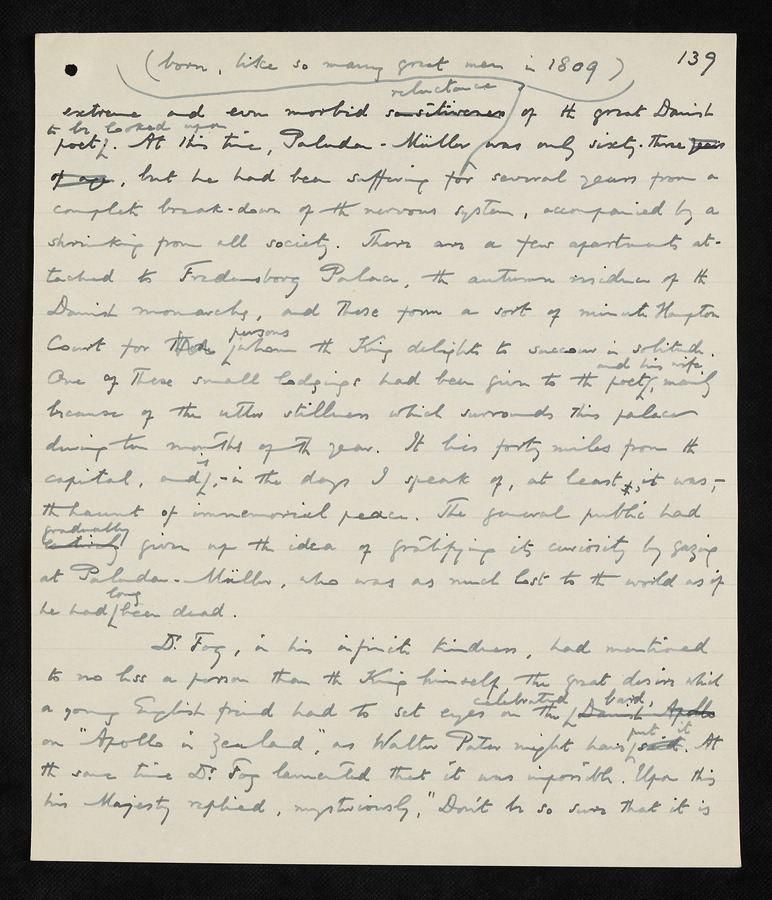 139
(born, like so many great men in 1809)
reluctance
extreme and even morbid sensitiveness of the great Danish
to be looked upon
poet. At this time, Paludan-Müller was only sixty-three years
of age, but he had been suffering for several years from a
complete break-down of the nervous system, accompanied by a
shrinking from all society. There are a few apartments at-
tached to Fredensborg Palace, the autumn residence of the
Danish monarchs, and these form a sort of minute Hampton
persons
Court for whom the King delights to succour in solitude.
and his wife
One of these small lodgings had been given to the poet, mainly
because of the utter stillness which surrounds this palace
during ten months of the year. It lies forty miles from the
capital, and, - in the days I speak of, at least, it was, -
the haunt of immemorial peace. The general public had
gradually
entirely given up the idea of gratifying its curiosity by gazing
at Paludan-Müller, who was as much lost to the world as if
long
he had been dead.
Dr. Fog, in his infinite kindness, had mentioned
to no less a person than the King himself, the great desire which
celebrated bard,
a young English friend had to set eyes on the Danish Apollo
put it
on "Apollo in Zealand", as Walter Pater might have said. At
the same time Dr. Fog lamented that it was impossible. Upon this
his Majesty replied, mysteriously, "Don't be so sure that it is